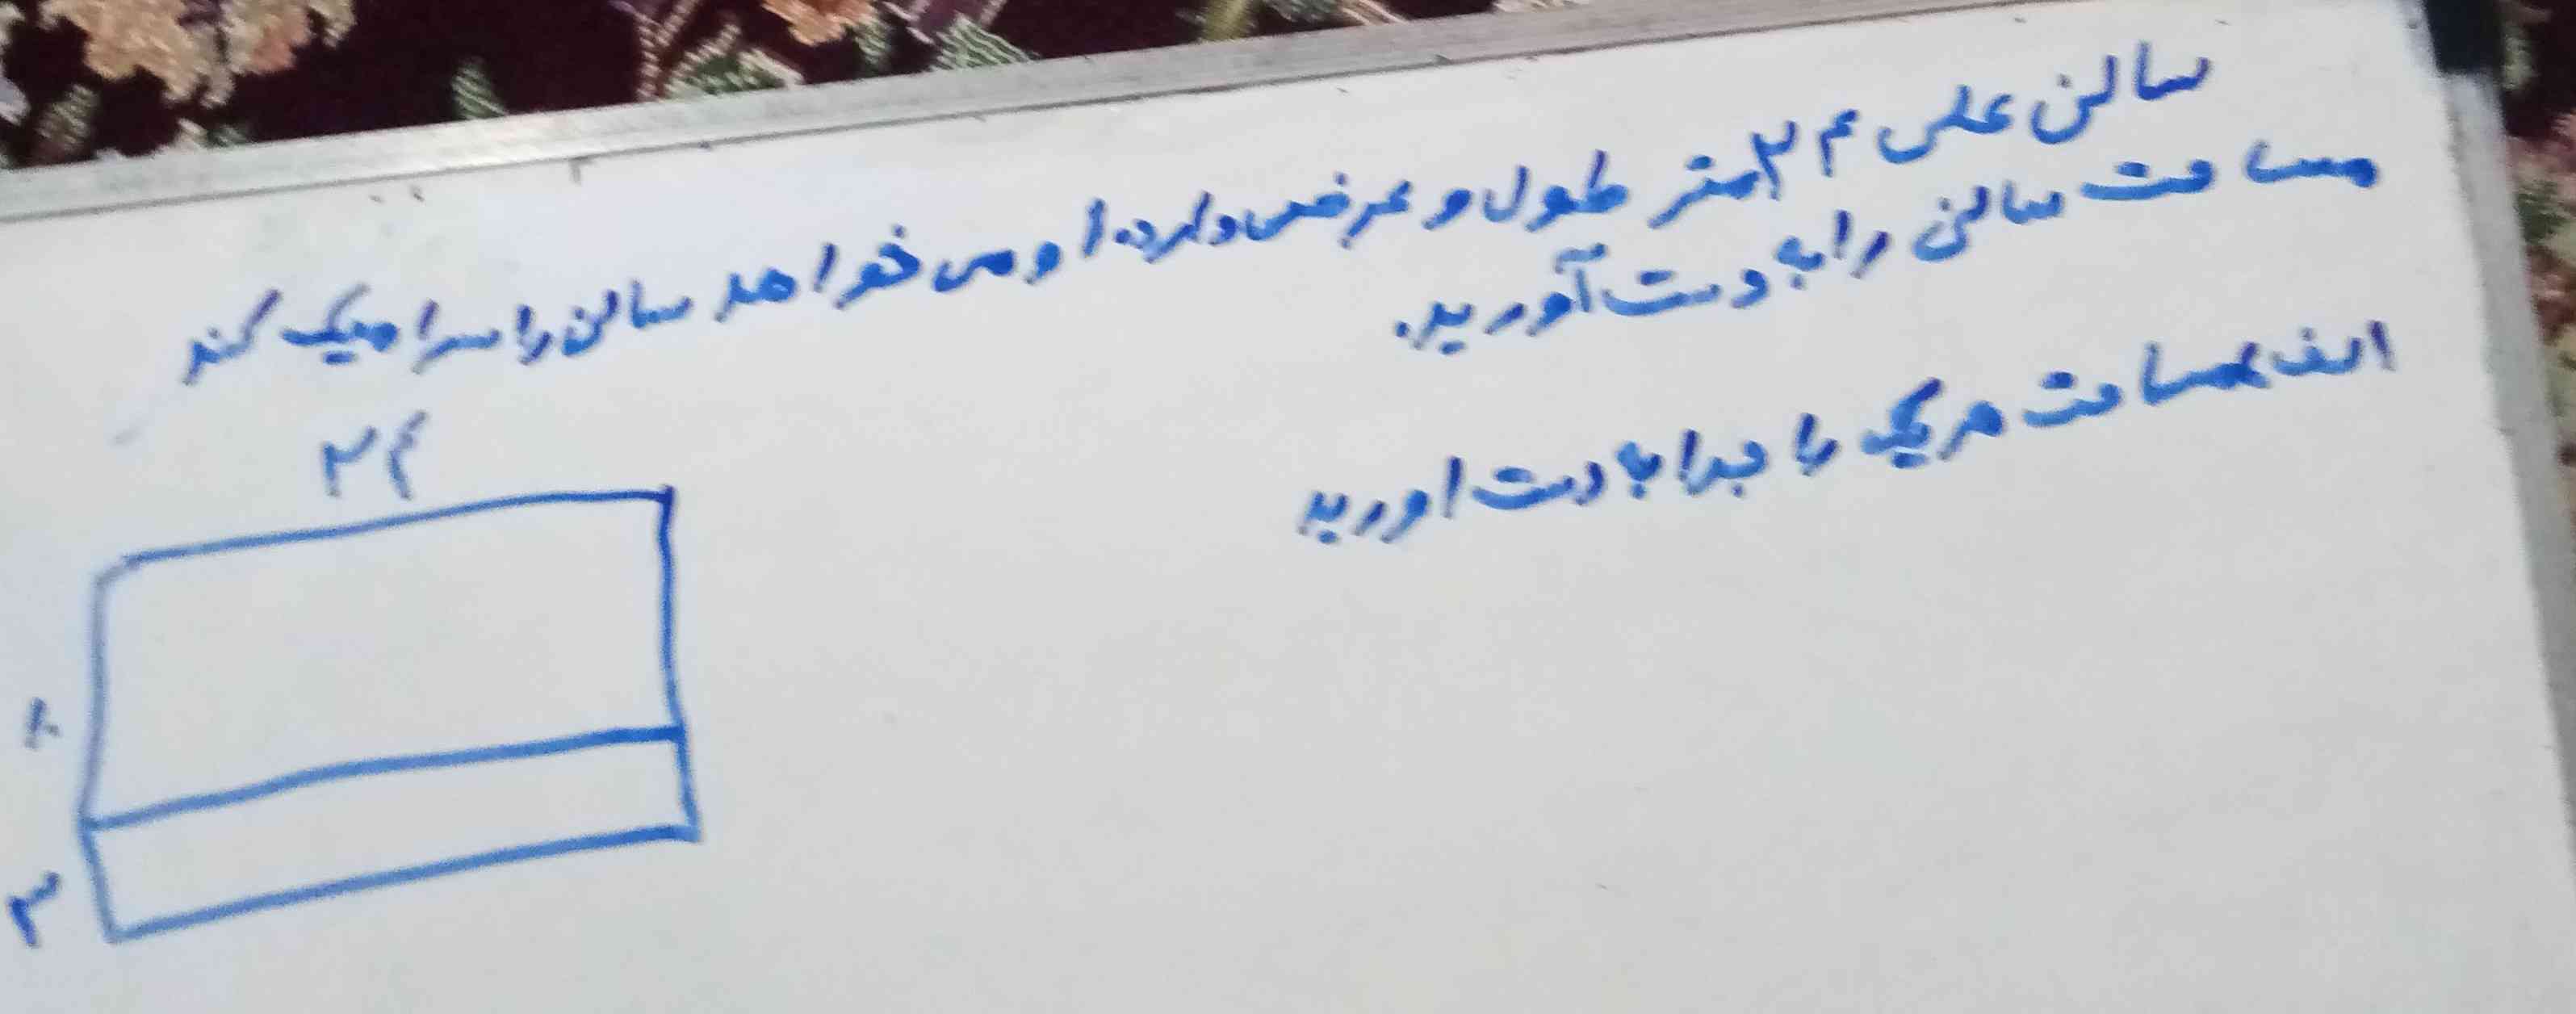 سالن علی ۲۴ متر طول و عرض دارد. او می خواهد سالن را سرامیک کند
مساحت سالن را به دست آورید.
الف مساحت هریک را جدا به دست اورید
۲۴
۳